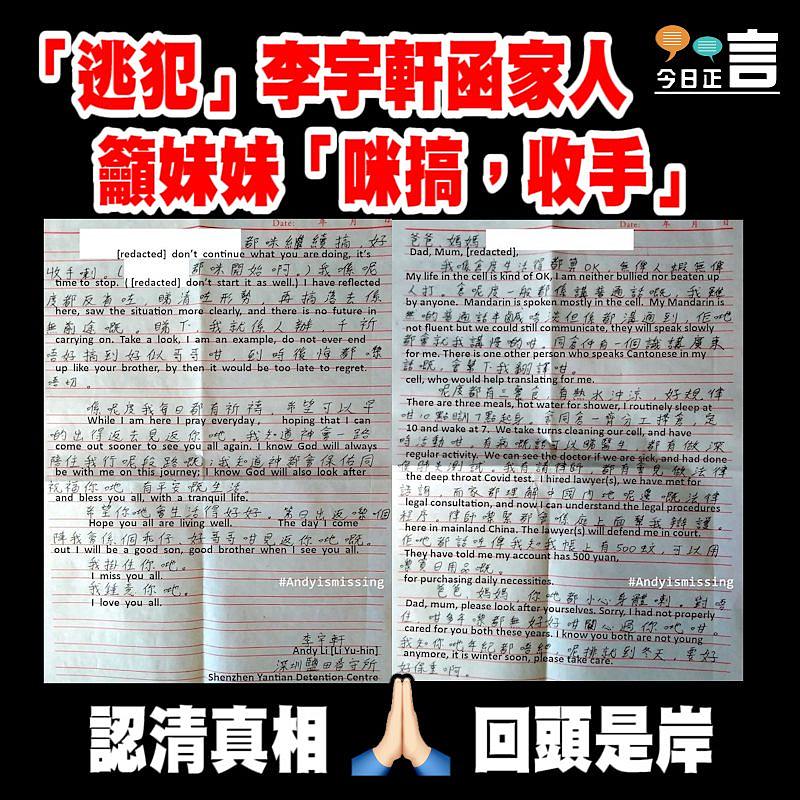 「逃犯」李宇軒函家人
今日正言
籲妹妹「咪搞，收手」
Date: 年 月
都咪繼續搞,好
[redacted] don't continue what you are doing, it's
收手喇。( 都咪開始啊。) 我喺呢
time to stop. ( [redacted] don't start it as well.) I have reflected
度都反省咗 睇清咗形勢，再搞落去係
here, saw the situation more clearly, and there is no future in
無前途嘅。睇下 我就係人辦，千祈
carrying on. Take a look, I am an example, do not ever end
唔好搞到好似哥哥咁，到時後悔都嚟
up like your brother, by then it would be too late to regret.
唔切。
喺呢度我每日都有祈禱，希望可以早
While I am here I pray everyday, hoping that I can
啲出嚟返去見返你哋。我知道神會一路
come out sooner to see you all again. I know God will always
陪住我行呢段路嘅,我知道神都會保佑同
be with me on this journey, I know God will also look after
祝福你哋,有平安嘅生活
and bless you all, with a tranquil life.
希望你哋會生活得好好。第日出返嚟個
Hope you all are living well. The day I come
陣我會係個乖仔,好哥哥咁見返你哋嘅。
out I will be a good son, good brother when I see you all.
我掛住你哋。
I miss you all.
我鍾意你哋。
I love you all.
#Andyismissing
李宇軒
Andy Li [Li Yu-hin]
深圳鹽田看守所
Shenzhen Yantian Detention Centre
Date: 年 月 日
爸爸,媽媽
Dad, Mum, [redacted],
我喺倉度生活得都算OK,無俾人蝦無俾
My life in the cell is kind of OK, I am neither bullied nor beaten up
人打。倉呢度一般都係講普通話嘅,我雖
by anyone. Mandarin is spoken mostly in the cell. My Mandarin is
not fluent but we could still communicate, they will speak slowly
都會就我講慢啲咁。同倉仲有一個識講廣東
for me. There is one other person who speaks Cantonese in my
話嘅,會幫下我翻譯咁。
cell, who would help translating for me.
呢度都有三餐食,有熱水沖涼,好規律
There are three meals, hot water for shower, I routinely sleep at
10 and wake at 7. We take turns cleaning our cell, and have
regular activity. We can see the doctor if we are sick, and had done
the deep throat Covid test. I hired lawyer(s), we have met for
諮詢,而家都理解中國內地呢邊嘅法律
legal consultation, and now I can understand the legal procedures
程序。律師嚟緊都會係庭上面幫我辯護。
here in mainland China. The lawyer(s) will defend me in court.
佢哋都話咗俾我知我帳上有500蚊,可以用
They have told me my account has 500 yuan,
嚟買日用品嘅。
for purchasing daily necessities.
#Andyismissing
爸爸,媽媽,你哋都小心身體喇。對唔
Dad, mum, please look after yourselves. Sorry, I had not properly
住,咁多年嚟都無好好咁關心過你哋咁。
cared for you both these years. I know you both are not young
我知你哋年紀都唔細,呢排就到冬天,要好
anymore, it is winter soon, please take care.
好保重啊。
認清真相 回頭是岸